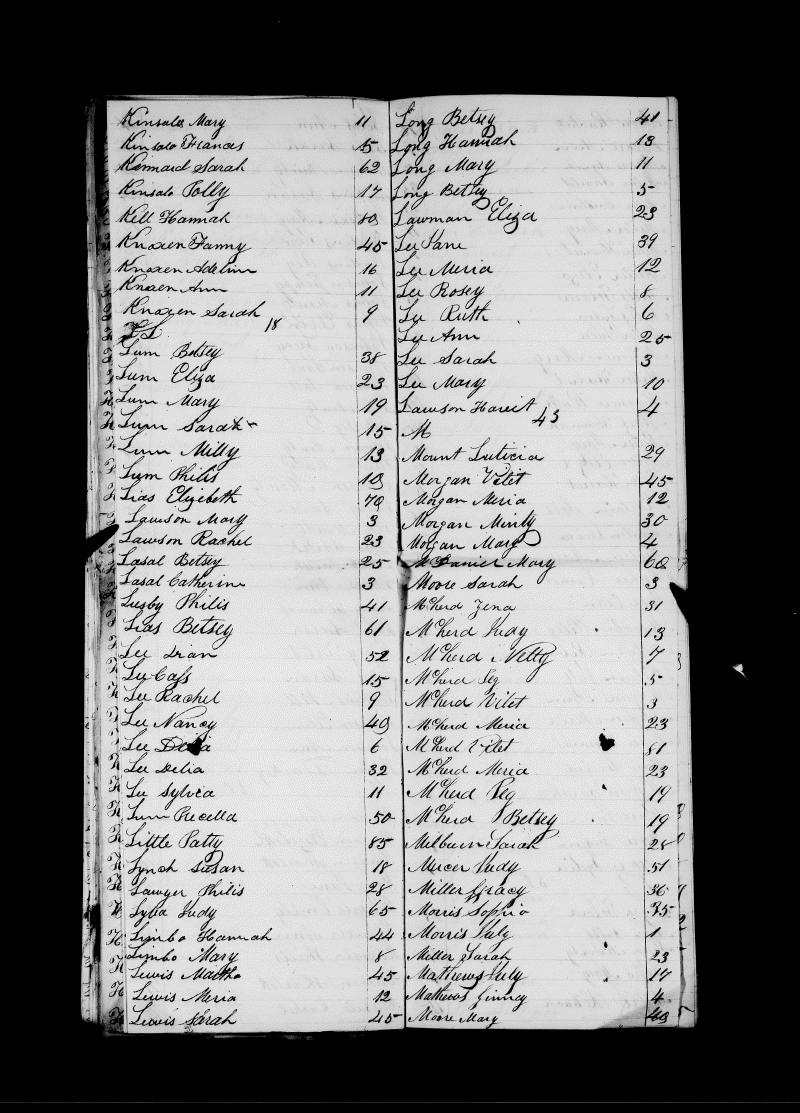 Kinsalo Mary 11
Kinsalo Frances 5
Kennard Sarah 62
Kinsalo Polly 17
Kell Hannah
Knoxen Fanny 45
Knoxen Adeline 16
Knoxen Ann 11
Knoxen Sarah 9
18
Lum Betsey 38
Lum Eliza 23
Lum Mary 19
Lum Sarah 15
Lum Milly 13
Lum Philis 10
Lias Elizebeth 70
Lawson Mary 3
Lawson Rachel 23
Lasal Betsey 25
Lasal Catherine 3
Lusby Philis 41
Lias Betsey 61
Lee Dian 52
Lee Cass 15
Lee Rachel 9
Lee Nancy 40
Lee 6
Lee Delia 32
Lee Sylvia 11
Lum Precella 50
Little Patty 85
Lynch Susan 18
Lawyer Philis 28
Judy 65
Limbo Hannah 44
Limbo Mary 8
Lewis Martha 45
Lewis Meria 12
Lewis Sarah 45
Long Betsey 41
Long Hannah 13
Long Mary 11
Long Betsey 5
Lawman Eliza 23
Lee Jane 39
Lee Meria 12
Lee Rosey 8
Lee Ruth 6
Lee Ann 25
Lee Sarah 3
Lee Mary 10
Lawson Hareit 4
M 43
Mount Luticia 29
Morgan Vilet 45
Morgan Meria 12
Morgan Minty 30
Morgan Mary 4
McDaniel Mary 60
Moore Sarah 3
McHerd Zena 31
McHerd Judy 13
McHerd Netty 7
McHerd Peg 5
McHerd Vilet 3
McHerd Meria 23
McHerd Vilet 81
McHerd Meria 23
McHerd Peg 19
McHerd Betsey 19
Melburn Sarah 28
Mercer Judy 51
Miller Gracy 36
Morris Sophia 35
Morris July 1
Miller Sarah 23
Mathews July 17
Mathews Jinny 4
Moore Mary